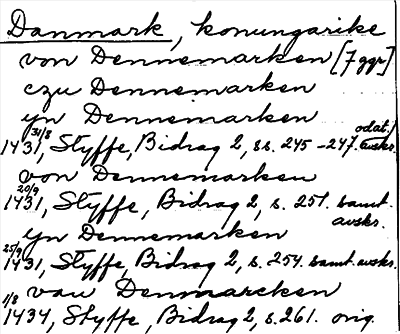 Danmark, konungarike
von Dennemarken [7 ggr]
czu Dennemarken
yn Dennemarken
31/8 1431, Styffe, Bidrag 2, ss. 245-247. odat. / avskr.
von Dennemarken
20/9 1431, Styffe, Bidrag 2, s. 251. samt. avskr.
yn Dennemarken
25/9 1431, Styffe, Bidrag 2, s. 254. samt. avskr.
vau Denmarcken
1/8 1434, Styffe, Bidrag 2, s. 261. orig.